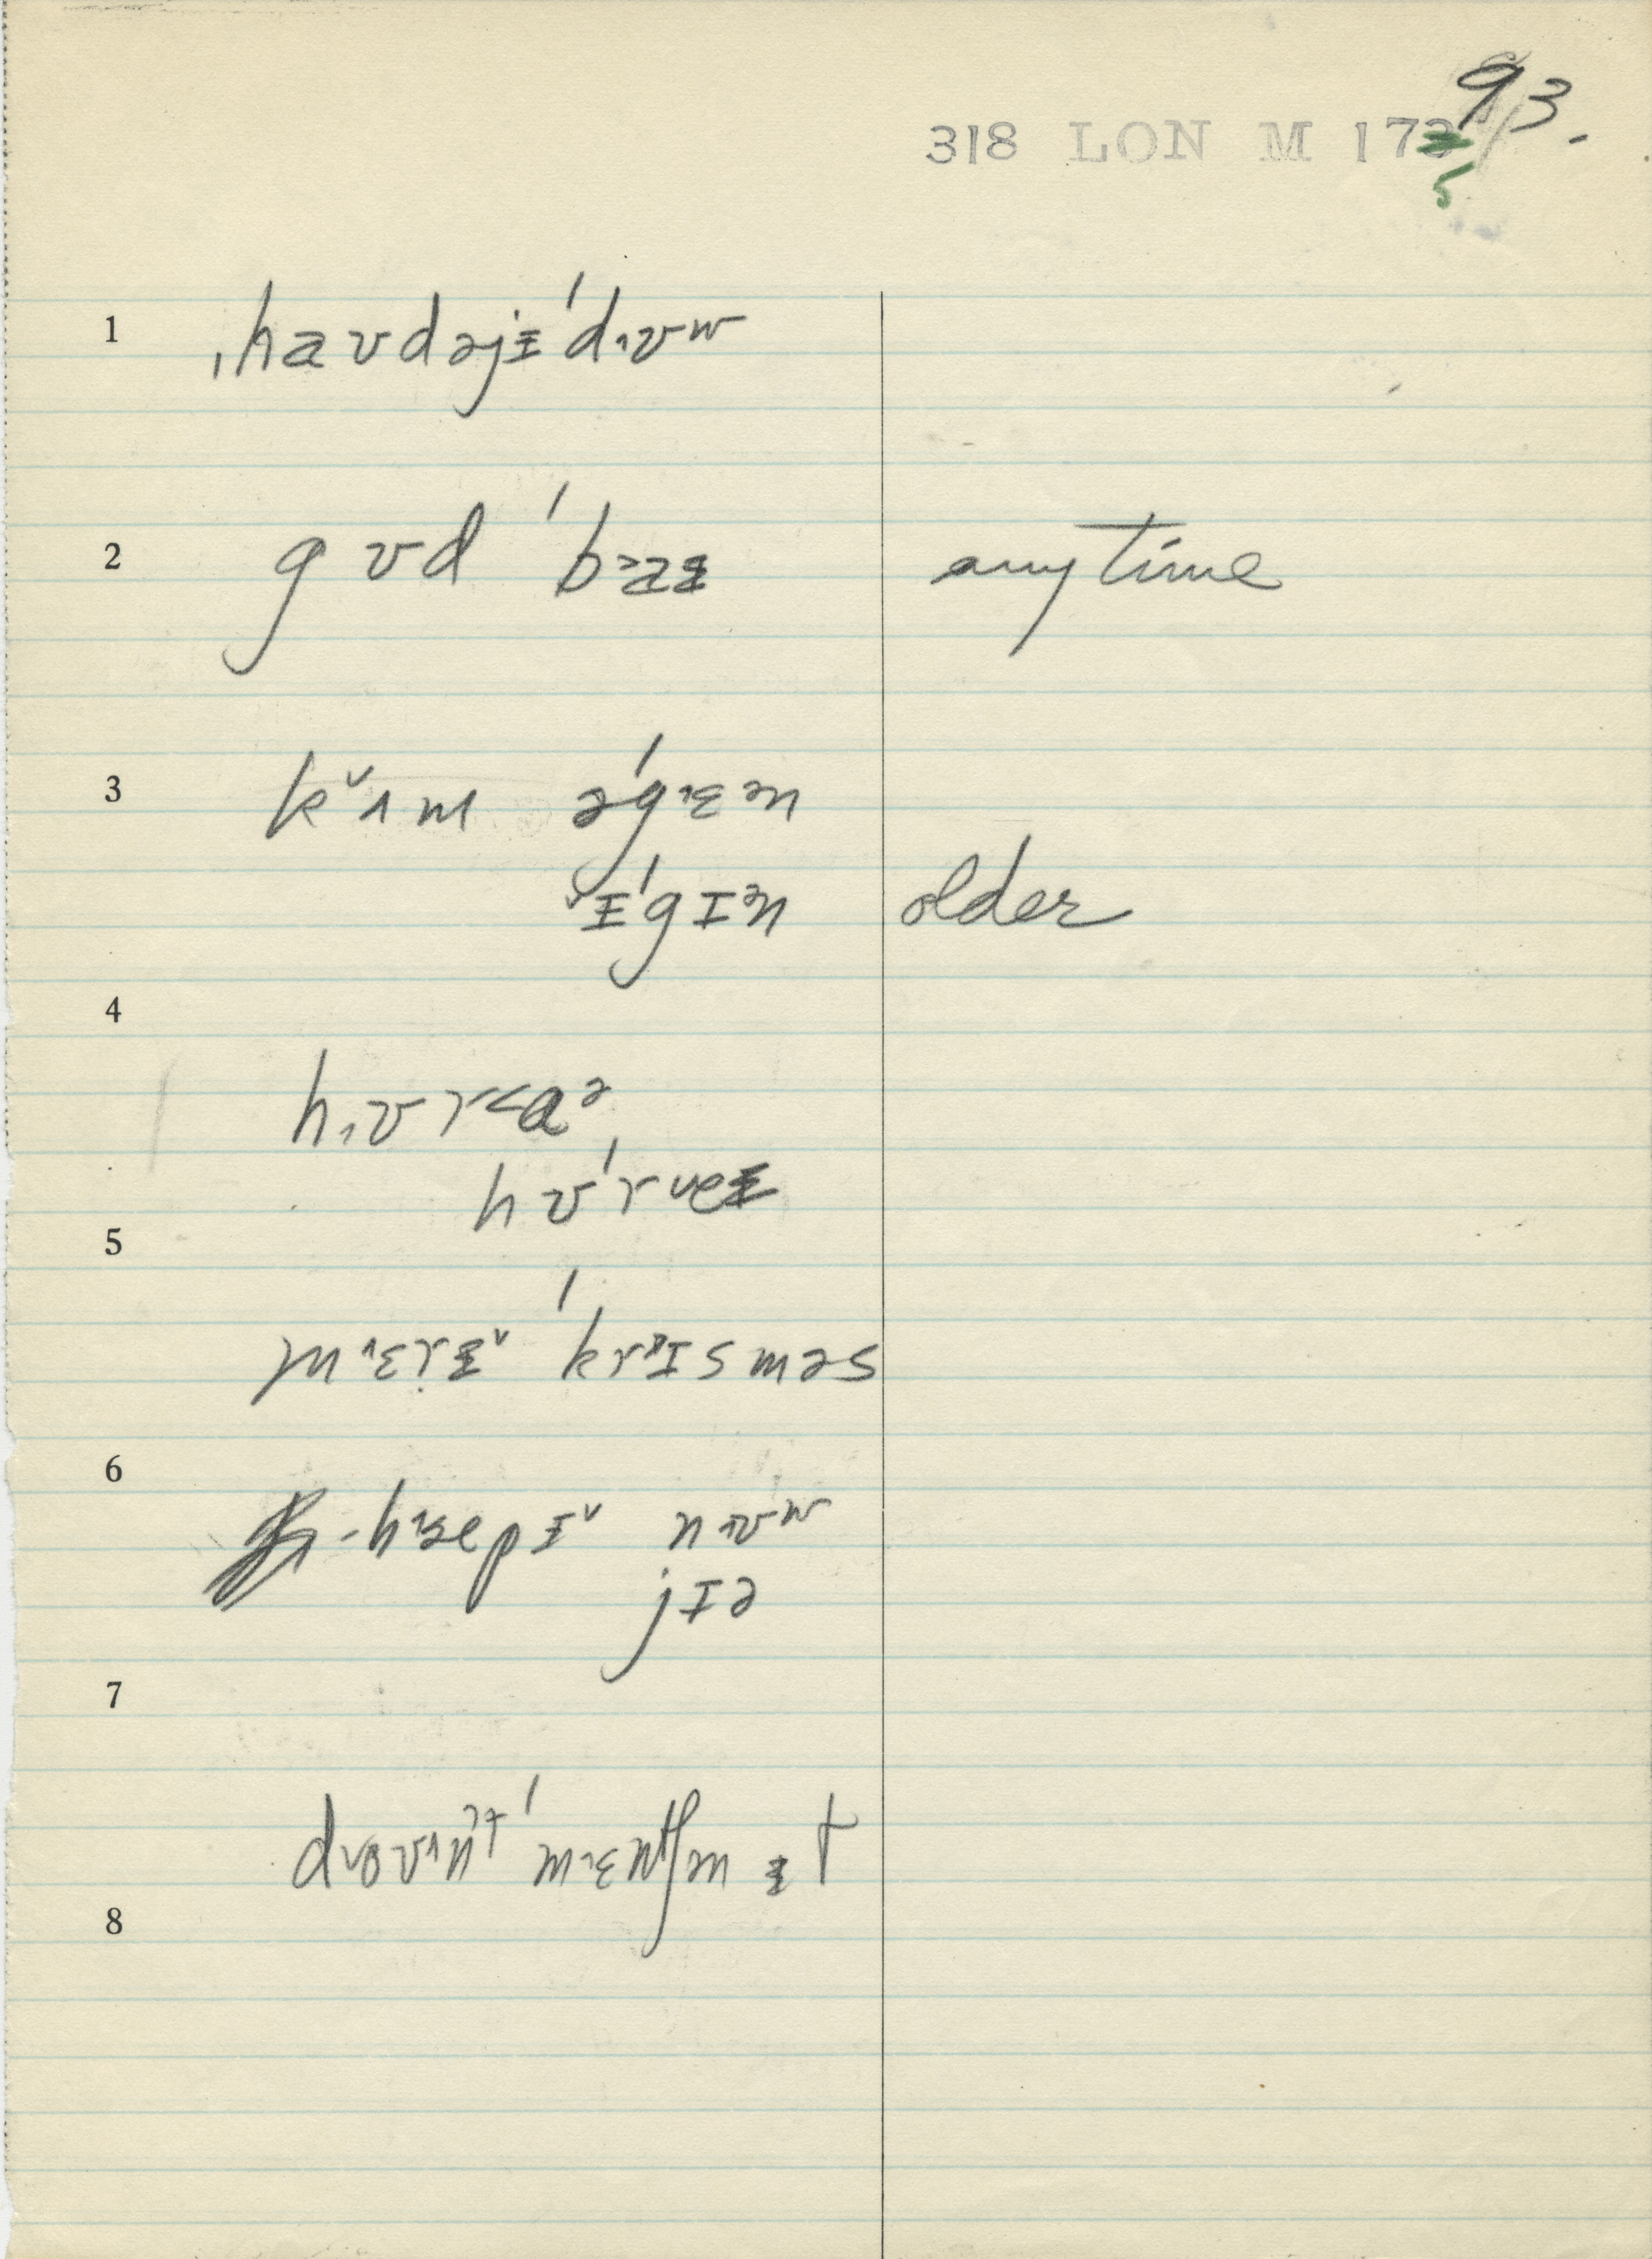 93.
318 LON M 173
5
1 ˌhaʊdəjɪ ˈdꞈʊʷ
2 gʊd ˈb˃aɪ anytime
3 k˅ʌm əˈgɛᵊn
ˇɪˈgɪᵊn older
4
hꞈʊr˂ɑᵊ
hʊˈr˅eɪ
5
m˄ɛrɪ˅ ˈkrɪsməs
6
-hæpɪ˅ nʊʷ
jɪə
7
d˅oʊnt ˈmɛntʃn ɪt
8